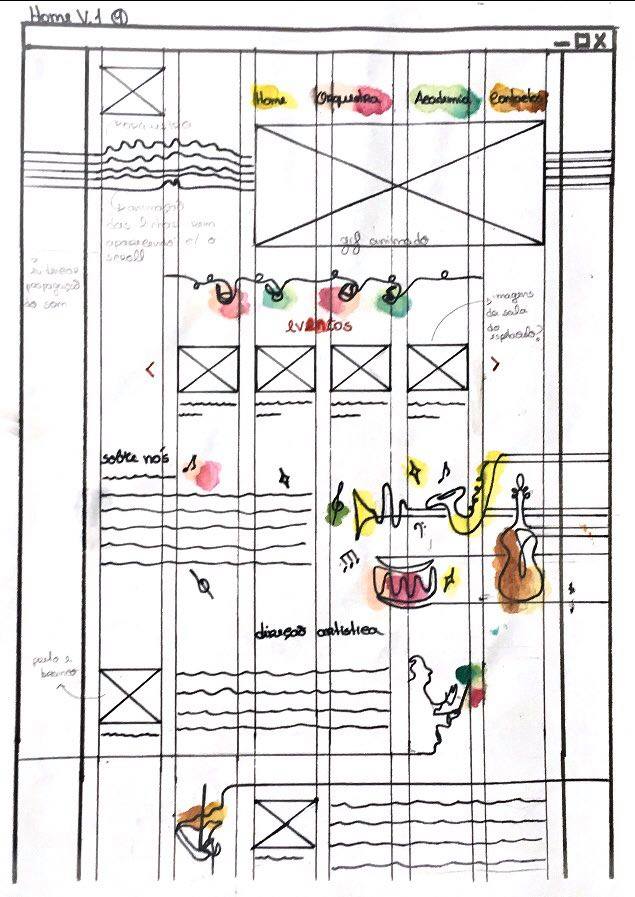 Home V.1 (1)
Home Orquestra Academia Contactos
(animação
das linhas vem
aparecendo c/ o
scroll
gif animado
propagação
do som
imagens
da sala
de
espetáculo?
eventos
< >
sobre nós
direção artística
preto e
branco